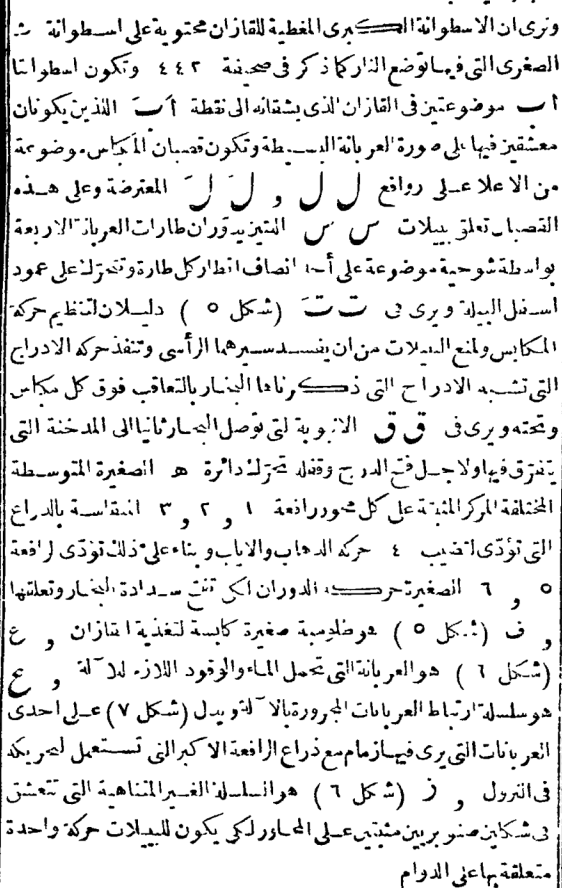 ونرى ان الاسطوانة الكبرى المغطية للقازان محتوية على اسطوانة ث
الصغرى التى فيها توضع النار كما ذكر فى صحيفة ٤٤٢ وتكون اسطوانتا
أ ب موضوعتين فى القازان الذى يشقانه الى نقطة أَ بَ اللذين يكونان
معشقين فيها على صورة العربانة البسيطة وتكون قصبان المكابس موضوعة
من الاعلا على روافع ل ل و لَ لَ المعترضة وعلى هذه
القصبان تعلق بييلات س س المتين يدوران طارات العربانة الاربعة
بواسطة شوحية موضوعة على أحد انصاف اقطار كل طارة وتتحرك على عمود
اسفل البيلة ويرى فى ت تَ (شكل ٥) دليلان لتنظيم حركة
المكابس ولمنع البييلات من ان يفسد سيرهما الرأسى وتنفذ حركه الادراج
التى تشبه الادراج التى ذكرناها البخار بالتعاقب فوق كل مكباس
وتحته ويرى فى ق ق الانبوبة التى توصل البخار ثانيا الى المدخنة التى
يتفرق فيها ولاجل فتح الدرج وقفله تحرك دائرة ه الصغيرة المتوسطة
المختلفة المركز المثبتة على كل محور رافعة ١ و ٢ و ٣ المنقاسة بالدراع
التى تؤدى لقضيب ٤ حركه الدهاب والاياب وبناء على ذلك تؤدى لرافعة
٥ و ٦ الصغيرة حركة الدوران لكى تفتح سدادة البخار وتعلقها
و ف (شكل ٥) هو طلومبة صغيرة كابسة لتغذية القازان و ع
(شكل ٦) هو العربانة التى تحمل الماء والوقود اللازم للآلة و ع
هو سلسلة ارتباط العربانات المجرورة بالآلة ويدل (شكل ٧) على احدى
العربانات التى يرى فيها زمام مع ذراع الرافعة الاكبر التى تستعمل لتحريكه
فى النزول و ز (شكل ٦) هو السلسلة الغير المتناهية التى تتعشق
فى شكلين صنوبريين مثبتين على المحاور لكى يكون للبييلات حركة واحدة
متعلقة بها على الدوام